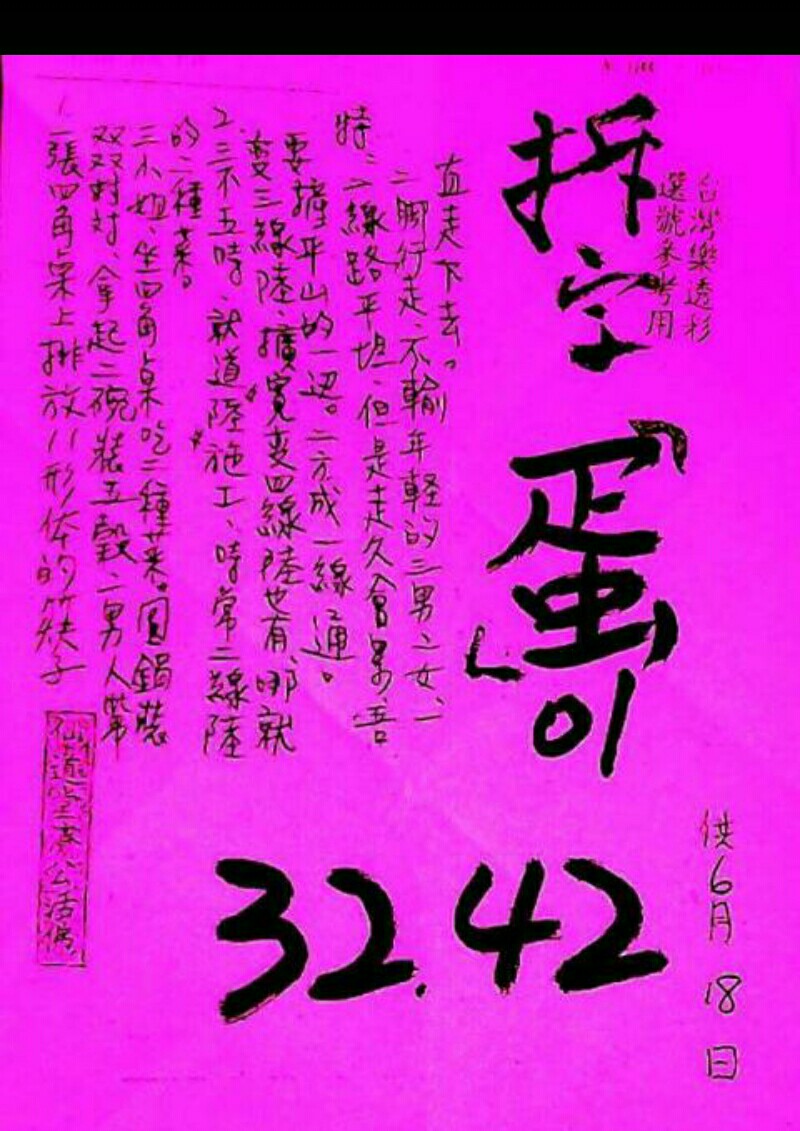 台灣樂透彩
選號參考用
拆字「蛋」01
32.42
供6月18日
1、一張四角桌上排放八形体的筷子
双双対対、拿起二碗裝五穀二男人帶
三小姐、坐四角桌吃二種菜。圓鍋裝
的二種菜。
2、三不五時、就道陸施工、時常二線陸
变三線陸、擴寬变四線陸也有、哪就
要撞平山的一边。二方成一線通。
特、二線路平坦、但是走久會累、吾
二脚行走、不輸年輕的三男二女、一
直走下去。
仙道 公活佛